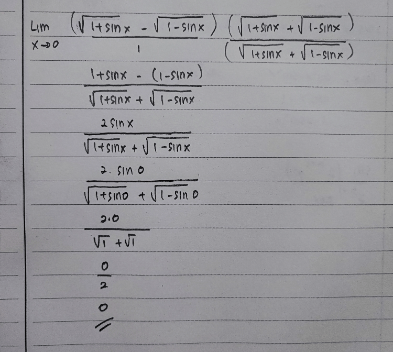 Lim (√1+sinx - √1-sinx) (√1+sinx + √1-sinx)
x→0 1 (√1+sinx + √1-sinx)
1+sinx - (1-sinx)
√1+sinx + √1-sinx
2 sin x
√1+sinx + √1-sinx
2. sin 0
√1+sin0 + √1-sin 0
2.0
√1 + √1
0
2
0